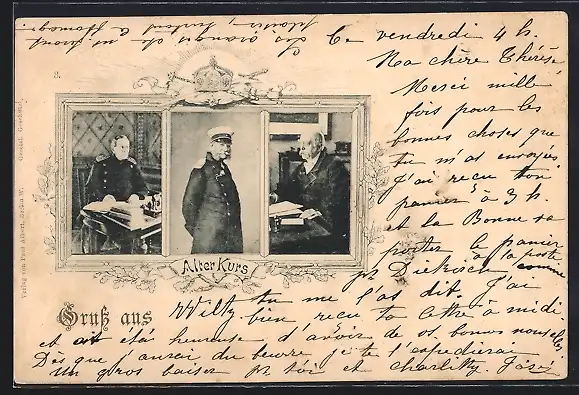 Ce vendredi 4 h.
Ma chère Thérèse
Merci mille
fois pour les
bonnes choses que
tu m'as envoyées
J'ai reçu ton
panier à 3 h.
et la Bonne va
porter le panier
à la poste
comme
tu me l'as dit. J'ai
bien reçu ta lettre à midi
et ai été heureuse d'avoir de vos bonnes nouvelles
Dès que j'aurai du beurre je te l'expédierai
Un gros baiser pr toi et
3.
Alter Kurs
Gruß aus
Wiltz
Verlag von Paul Albert, Berlin W. Gesetzl. Geschützt